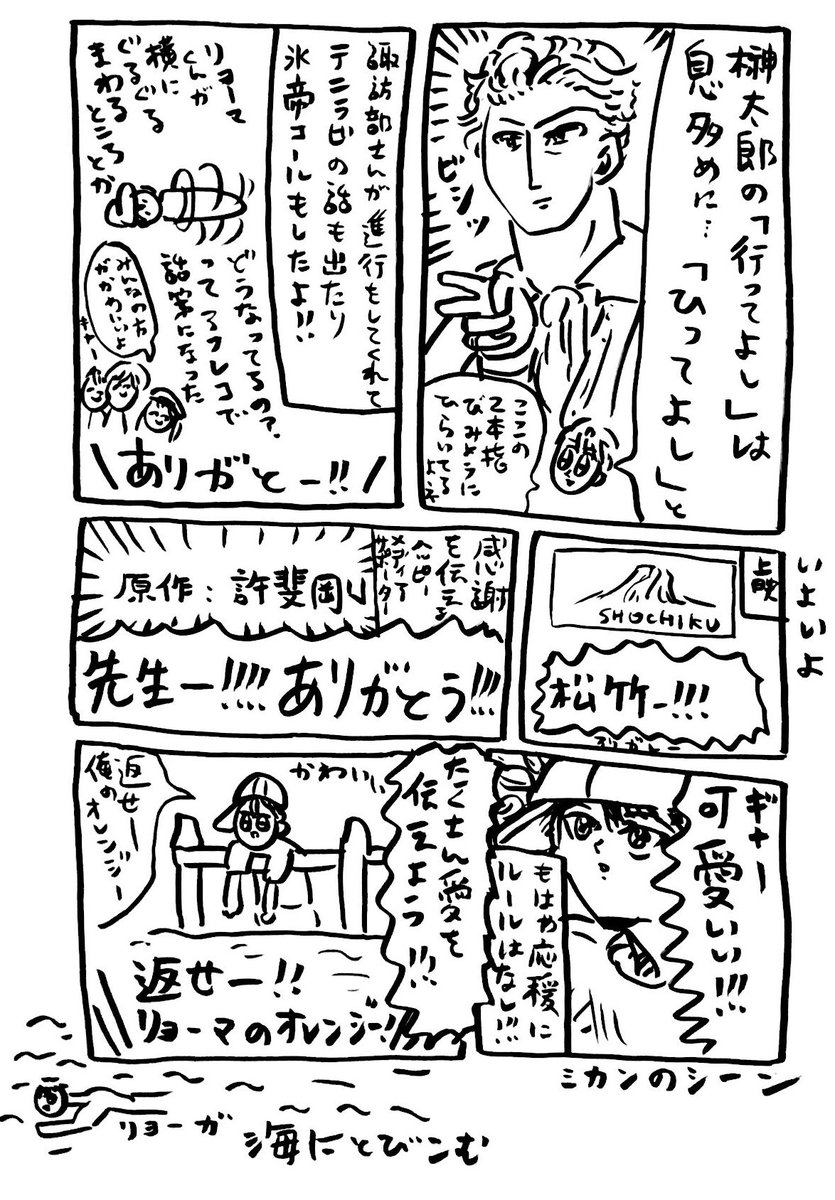 榊太郎の「行ってよし」は
息多めに…「ひってよし」と
ビシッ
ここの
2本指
びみょうに
ひらいてる
よネ
諏訪部さんが進行をしてくれて
テニラビの話も出たり
氷帝コールもしたよ!!
リョーマ
くんが
横に
ぐるぐる
まわる
ところとか
どうなってるの?
ってアフレコで
話案になった
みんなの方
がかわいいよ
キャー
\ありがとー!!/
いよいよ
上映
SHOCHIKU
松竹ー!!!
ありがとー
感謝
を伝える
ハッピー
メディア
サポーター
原作:許斐剛
先生ー!!!! ありがとう!!!
ギャー
可愛いい!!!
もはや応援に
ルールはなし!!!
ミカンのシーン
たくさん愛を
伝えよう!!!
かわいい
返せー
俺の
オレンジー
返せー!!
リョーマのオレンジー!!
リョーガ
海にとびこむ